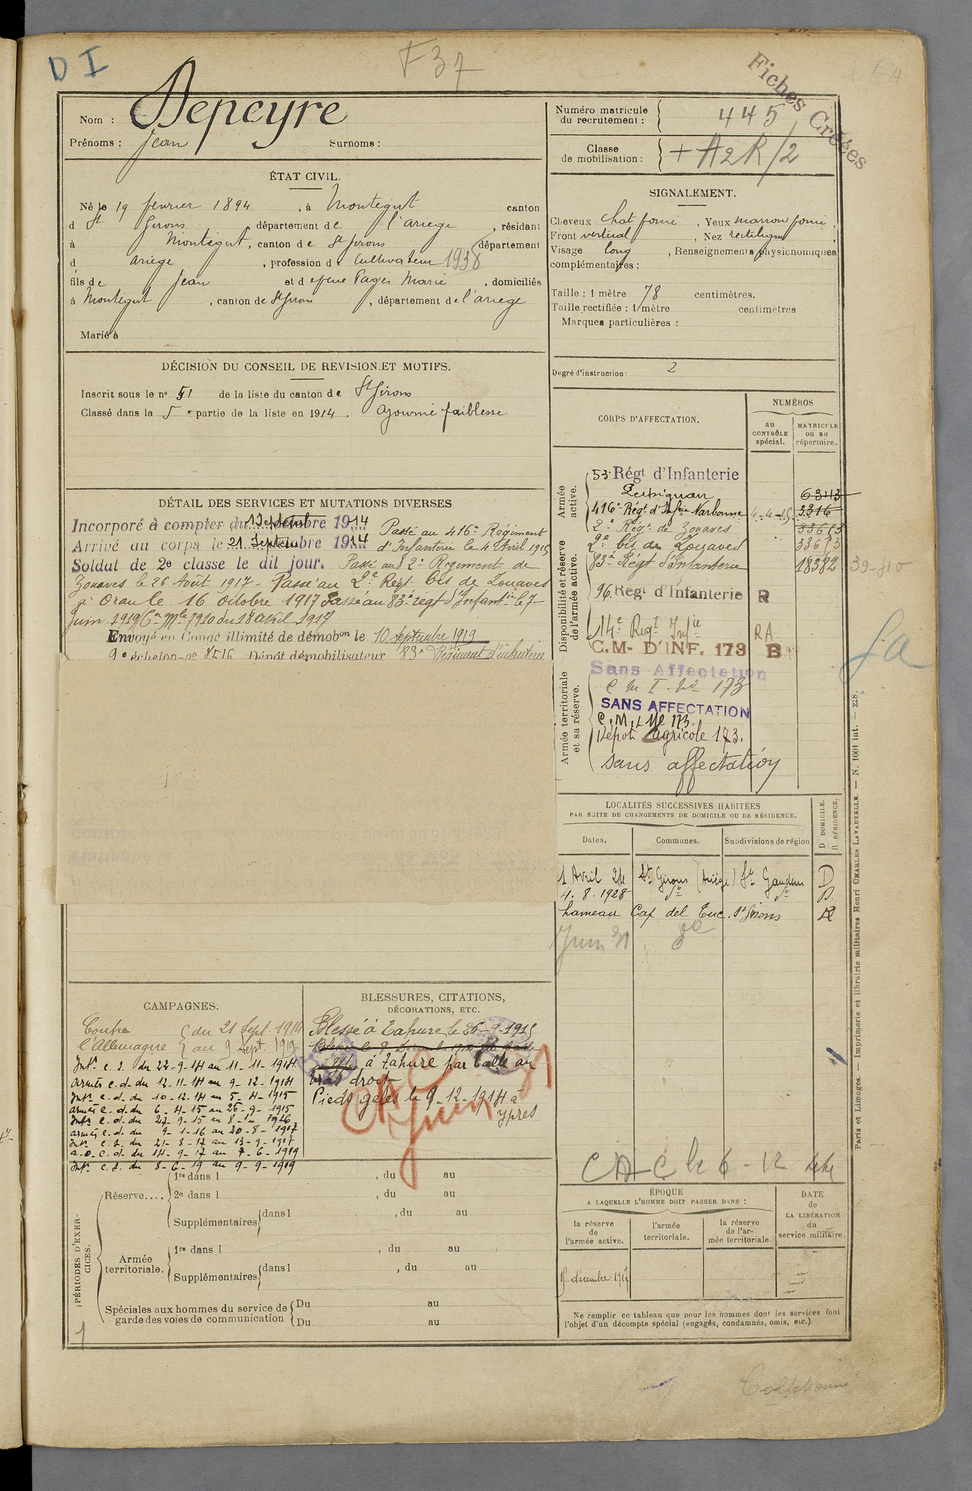 D I
F 37
Fiches Créées
Nom : Depeyre
Prénoms : Jean Surnoms :
Numéro matricule du recrutement : 445
Classe de mobilisation : + A2R/2
ÉTAT CIVIL.
Né le 19 février 1894, à Montégut canton
d St Girons, département de l'ariege, résidant
à Montégut, canton de St Girons département
d ariege, profession de Cultivateur 1938
fils de Jean et d efeue Pages Marie, domiciliés
à Montégut, canton de St Girons, département de l'ariege
Marié à
SIGNALEMENT.
Cheveux chat foncé, Yeux marron foncé,
Front vertical, Nez rectiligne,
Visage long, Renseignements physionomiques
complémentaires :
Taille : 1 mètre 78 centimètres.
Taille rectifiée : 1 mètre centimètres
Marques particulières :
Degré d'instruction : 2
DÉCISION DU CONSEIL DE REVISION ET MOTIFS.
Inscrit sous le n° 51 de la liste du canton de St Girons
Classé dans la 5e partie de la liste en 1914. Ajourné faiblesse
DÉTAIL DES SERVICES ET MUTATIONS DIVERSES
Incorporé à compter du Septembre 1914 Passé au 416e Régiment
Arrivé au corps le 21 Septembre 1914 d'Infanterie le 4 Avril 1915
Soldat de 2e classe le dit jour. Passé au 2e Regiment de
Zouaves le 26 Août 1917 - Passé au 2e Régt bis de Zouaves
à Oran le 16 octobre 1917 Passé au 83e regt d'Infantie le 7
juin 1919
Envoyé en Congé illimité de démobon le 10 septembre 1919
9e échelon n° 7516 Dépôt démobilisateur 83e Régiment d'infanterie
CORPS D'AFFECTATION.
NUMÉROS
au CONTRÔLE spécial.
MATRICULE ou au répertoire.
Armée active.
53 Régt d'Infanterie
Perpignan 6343
416e Régt d'Infie Narbonne 4-4-15 3316
2e Régt de Zouaves 33613
2e bis de Zouaves 33613
Disponibilité et réserve de l'armée active.
83e Régt d'infanterie 18382
96 Régt d'Infanterie R
14e Regt Infie RA
C.M. D'INF. 173 B
Armée territoriale et sa réserve.
Sans Affectation
C M I. N° 173
SANS AFFECTATION
C.M.I. N° 173.
Dépôt Agricole 173.
sans affectation
LOCALITÉS SUCCESSIVES HABITÉES
PAR SUITE DE CHANGEMENTS DE DOMICILE OU DE RÉSIDENCE.
Dates. Communes. Subdivisions de région D DOMICILE. R RÉSIDENCE.
1 Avril 24 St Girons (Ariège) St Gaudens D
4. 8. 1928 do do D.
hameau Cap del Tuc. St Girons R
Juin 31 do
CAMPAGNES.
Contre du 21 Sept 1914
l'Allemagne au 9 Sept 1919
Intr. c. d. du 22-9-14 au 11-11-1914
armée c. d. du 12-11-14 au 9-12-1914
Intr. c. d. du 10-12-14 au 5-4-1915
armée c. d. du 6-4-15 au 26-9-1915
Intr. c. d. du 27-9-15 au 8-1-1916
armée c. d. du 9-1-16 au 20-8-1917
Intr. c. d. du 21-8-17 au 13-9-1917
a.o. c. d. du 14-9-17 au 7-6-1919
Intr. c. d. du 8-6-19 au 9-9-1919
BLESSURES, CITATIONS,
DÉCORATIONS, ETC.
Blessé à Tahure le 26-9-1915
à Tahure par balle au
bras droit
Pieds gelés le 9-12-1914 à
Ypres
CAC le 6-12
PÉRIODES D'EXERCICES.
Réserve.... 1re dans l , du au
2e dans l , du au
Supplémentaires dans l , du au
Armée territoriale. 1re dans l , du au
Supplémentaires dans l , du au
Spéciales aux hommes du service de garde des voies de communication Du au
Du au
ÉPOQUE
A LAQUELLE L'HOMME DOIT PASSER DANS :
la réserve de l'armée active. l'armée territoriale. la réserve de l'armée territoriale.
DATE de LA LIBÉRATION du service militaire.
Ne remplir ce tableau que pour les hommes dont les services font
l'objet d'un décompte spécial (engagés, condamnés, omis, etc.).
Paris et Limoges. — Imprimerie et librairie militaires Henri CHARLES-LAVAUZELLE. — N. 1001 int. —